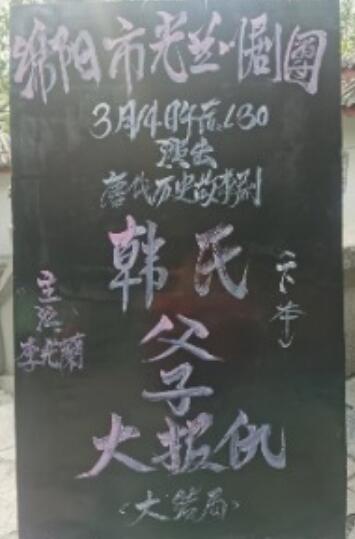 绵阳市光兰川剧團
3月14日午后1:30
演出
唐代历史故事剧
韩氏
父
子
大报仇
(大结局)
(下本)
主演
李光蘭